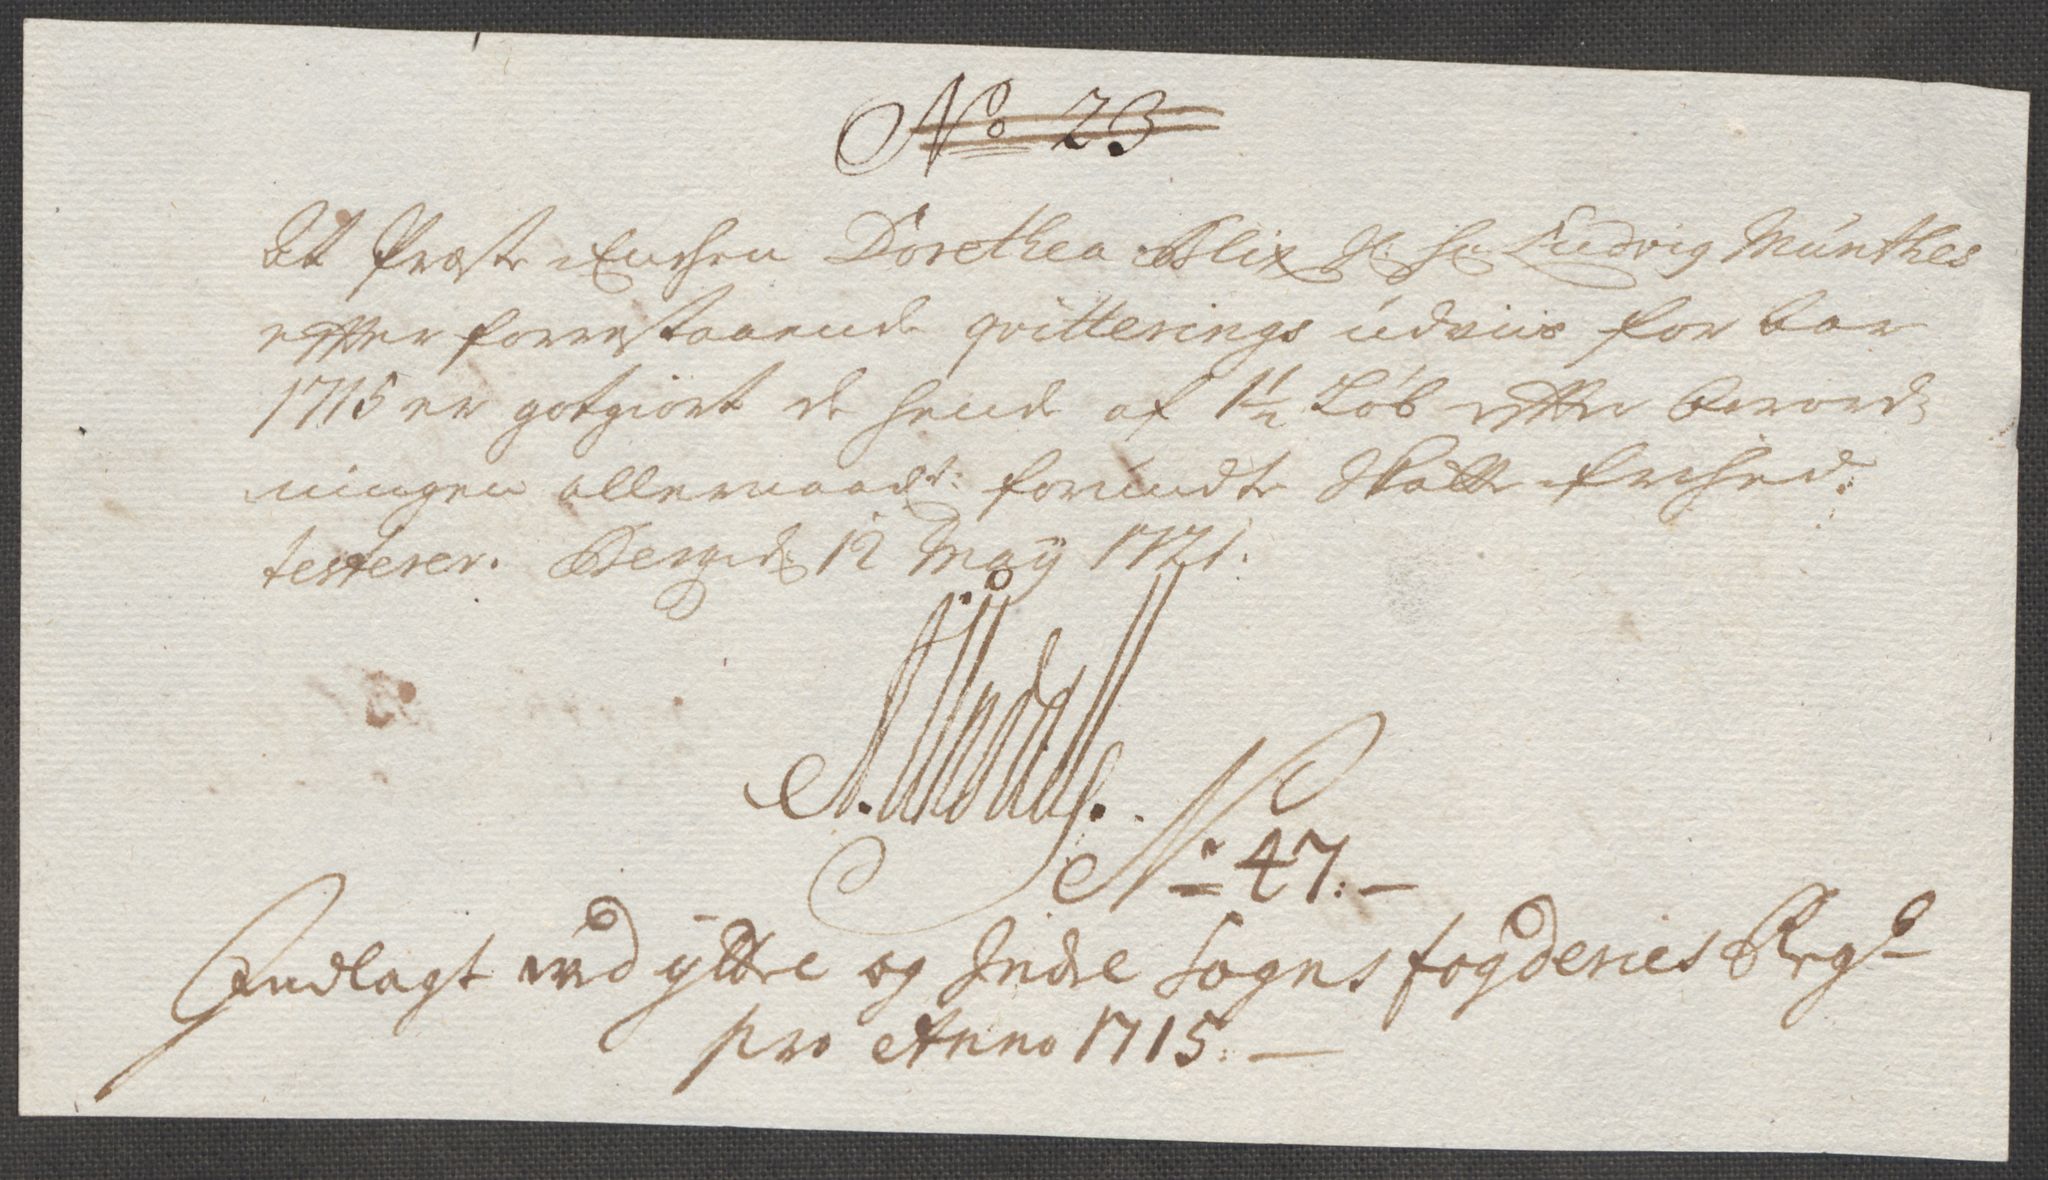 No 23
At Præste Enchen Dorethea Blix Sl. Hr. Ludvig Münthes
efter forrestaaende qvitterings üdviis for Aar
1715 er gotgiort de hende af 1 1/2 Løb efter Forord-
ningen allernaadst: forundte Skatte frihed.
testerer. Bergen d. 12 Maÿ 1721.
No 47.
Indlagt ved ÿttre og Indre Sogns fogderies Regsk
pro Anno 1715.